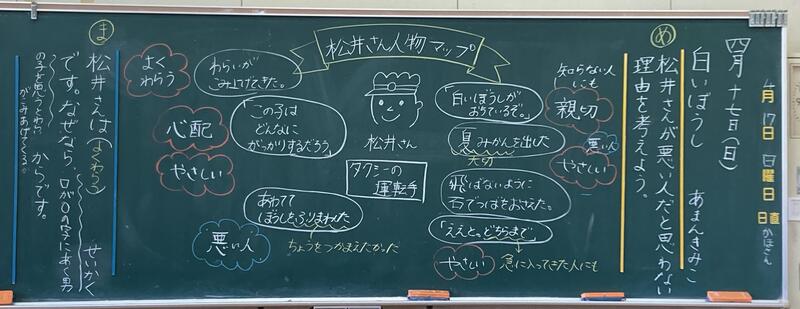 四月十七日(日)
4月17日日曜日
日直
かほさん
白いぼうし
あまんきみこ
め
松井さんが悪い人だと思わない
理由を考えよう。
松井さん人物マップ
知らない人
にも
親切
「白いぼうしが
おちているぞ。」
夏みかんを出した
大切
悪い人
やさしい
飛ばないように
石でつばをおさえた。
「ええと。どちらまで。」
やさしい
急に入ってきた人にも
松井さん
タクシーの
運転手
わらいが
こみ上げてきた。
よく
わらう
「この子は
どんなに
がっかりするだろう。」
心配
やさしい
あわてて
ぼうしをふりまわした
ちょうをつかまえたかった
悪い人
ま
松井さんは(よくわらう)せいかく
です。なぜなら、口がOの字にあく男
の子を思うとわらい
がこみあげてくる。
からです。